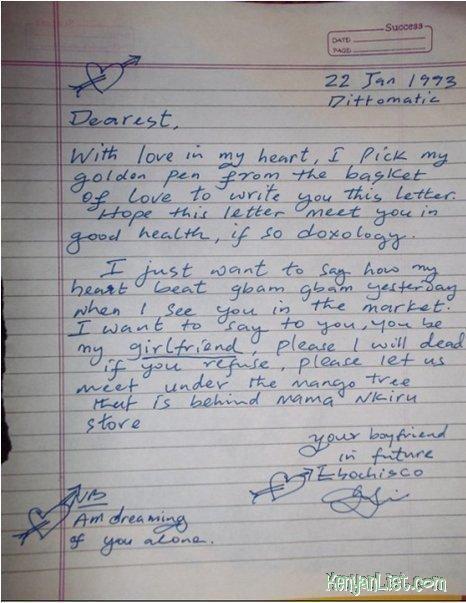 Success
DATE
PAGE
22 Jan 1993
Dittomatic
Dearest,
With love in my heart, I pick my
golden pen from the basket
of love to write you this letter.
Hope this letter meet you in
good health, if so doxology.
I just want to say how my
heart beat gbam gbam yesterday
when I see you in the market.
I want to say to you, you be
my girlfriend, please I will dead
if you refuse, please let us
meet under the mango tree
that is behind mama Nkiru
store
your boyfriend
in future
Ebochisco
NB
Am dreaming
of you alone.
KenyanList.com